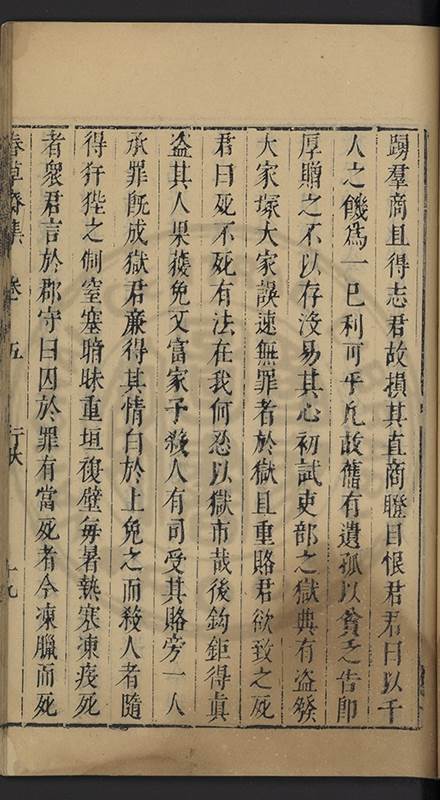 踴羣商且得志君故損其直商瞪目恨君君曰以千
人之饑爲一己利可乎凡故舊有遺孤以貧乏告卽
厚贈之不以存沒易其心初試吏部之獄典有盜發
大家塚大家誤速無罪者於獄且重賂君欲致之死
君曰死不死有法在我何忍以獄市哉後鈎鉅得眞
盗其人果獲免又富家子殺人有司受其賂旁一人
承罪旣成獄君廉得其情白於上免之而殺人者隨
得犴狴之侗窒塞暗昧重垣複壁每暑熱寒凍疫死
者衆君言於郡守曰囚於罪有當死者今凍臘而死
春草齋集 卷五 行狀 十九